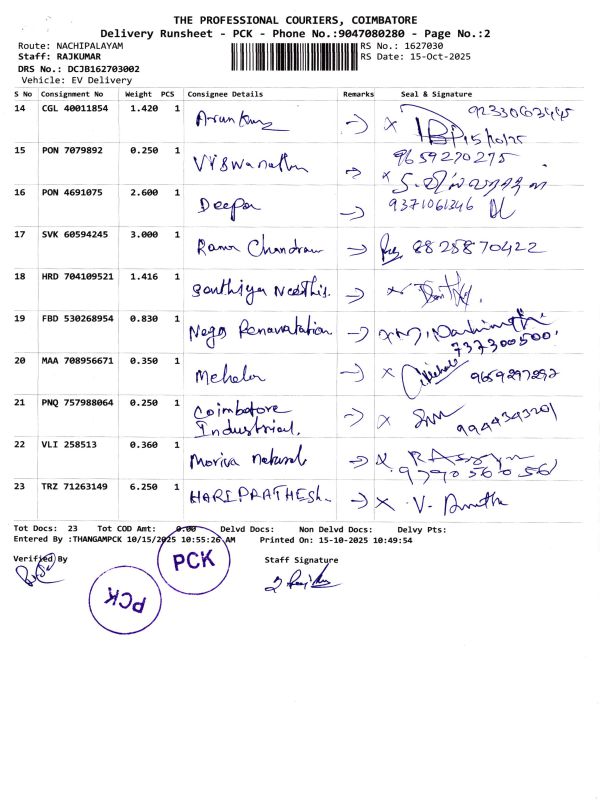 THE PROFESSIONAL COURIERS, COIMBATORE
Delivery Runsheet - PCK - Phone No.:9047080280 - Page No.:2
Route: NACHIPALAYAM RS No.: 1627030
Staff: RAJKUMAR RS Date: 15-Oct-2025
DRS No.: DCJB162703002
Vehicle: EV Delivery
S No Consignment No Weight PCS Consignee Details Remarks Seal & Signature
14 CGL 40011854 1.420 1 Arun Kumar → x 9233063445
15/10/25
15 PON 7079892 0.250 1 Viswanathan → x 9659270275
16 PON 4691075 2.600 1 Deepa → 9371061346
17 SVK 60594245 3.000 1 Rama Chandran → 8825870422
18 HRD 704109521 1.416 1 Santhiya Neethis. → x
19 FBD 530268954 0.830 1 Nega Renavatation → x
737300500.
20 MAA 708956671 0.350 1 Mehala → x 9659297292
21 PNQ 757988064 0.250 1 Coimbatore → x
Industrial. 9944343201
22 VLI 258513 0.360 1 Moriva natural → x
9790560561
23 TRZ 71263149 6.250 1 HARIPRATHESH. → x V.
Tot Docs: 23 Tot COD Amt: 0.00 Delvd Docs: Non Delvd Docs: Delvy Pts:
Entered By :THANGAMPCK 10/15/2025 10:55:26 AM Printed On: 15-10-2025 10:49:54
Verified By PCK Staff Signature
PCK